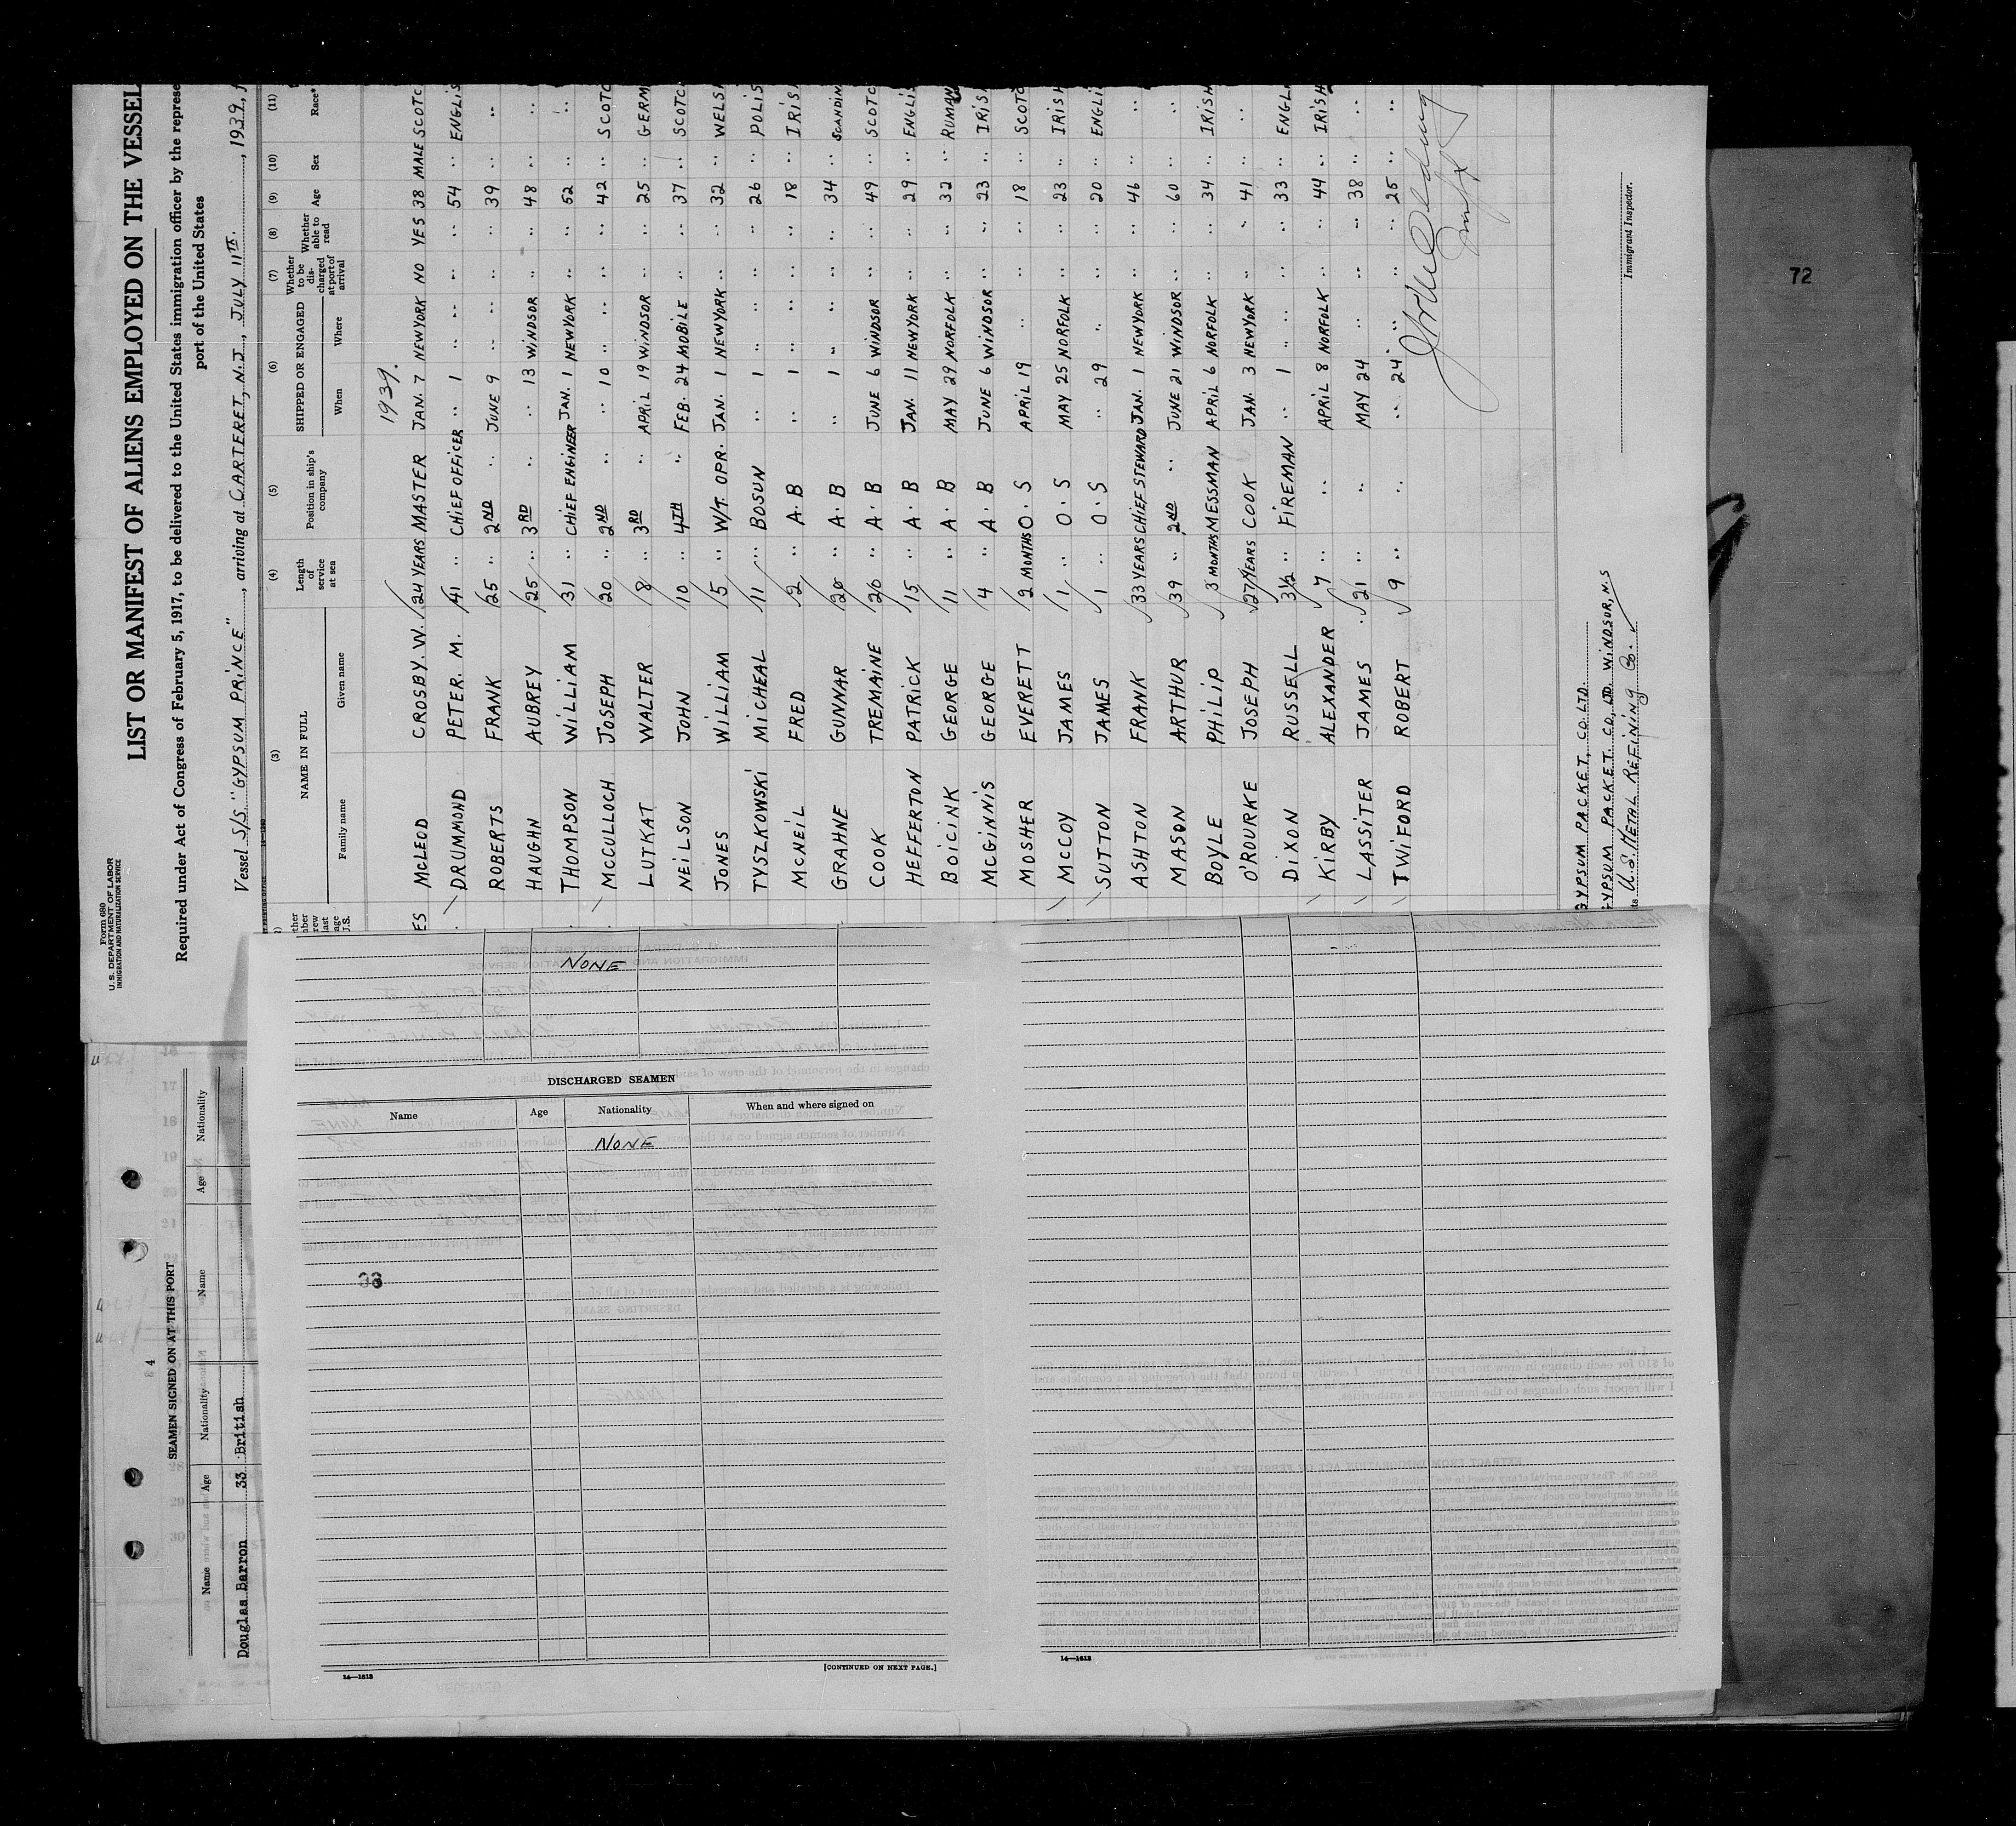 Form 680
U. S. DEPARTMENT OF LABOR
IMMIGRATION AND NATURALIZATION SERVICE
LIST OR MANIFEST OF ALIENS EMPLOYED ON THE VESSEL
Required under Act of Congress of February 5, 1917, to be delivered to the United States immigration officer by the represe
port of the United States
Vessel S/S. "GYPSUM PRINCE", arriving at CARTERET, N.J., JULY 11TH., 1939, f
(3) (4) (5) (6) (7) (8) (9) (10) (11)
NAME IN FULL Length of service at sea Position in ship's company SHIPPED OR ENGAGED Whether to be discharged at port of arrival Whether able to read Age Sex Race*
Family name Given name When Where
1939.
ES McLEOD CROSBY. W. 24 YEARS MASTER JAN. 7 NEW YORK NO YES 38 MALE SCOTC
DRUMMOND PETER. M. 41 .. CHIEF OFFICER .. 1 .. .. .. 54 .. ENGLIS
ROBERTS FRANK 25 .. 2ND .. JUNE 9 .. .. .. 39 .. ..
HAUGHN AUBREY 25 .. 3RD .. .. 13 WINDSOR .. .. 48 .. ..
THOMPSON WILLIAM 31 .. CHIEF ENGINEER JAN. 1 NEW YORK .. .. 52 .. ..
McCULLOCH JOSEPH 20 .. 2ND .. .. 10 .. .. .. 42 .. SCOTC
LUTKAT WALTER 8 .. 3RD .. APRIL 19 WINDSOR .. .. 25 .. GERM
NEILSON JOHN 10 .. 4TH .. FEB. 24 MOBILE .. .. 37 .. SCOTC
JONES WILLIAM 5 .. W/T. OPR. JAN. 1 NEW YORK .. .. 32 .. WELSH
TYSZKOWSKI MICHEAL 11 .. BOSUN .. 1 .. .. .. 26 .. POLIS
McNEIL FRED 2 .. A. B .. 1 .. .. .. 18 .. IRIS
GRAHNE GUNNAR 20 .. A. B .. 1 .. .. .. 34 .. SCANDIN
COOK TREMAINE 26 .. A. B JUNE 6 WINDSOR .. .. 49 .. SCOTC
HEFFERTON PATRICK 15 .. A. B JAN. 11 NEW YORK .. .. 29 .. ENGLIS
BOICINK GEORGE 11 .. A. B MAY 29 NORFOLK .. .. 32 .. RUMAN
McGINNIS GEORGE 4 .. A. B JUNE 6 WINDSOR .. .. 23 .. IRIS
MOSHER EVERETT 2 MONTHS O. S APRIL 19 .. .. .. 18 .. SCOTC
McCOY JAMES 1 .. O. S MAY 25 NORFOLK .. .. 23 .. IRISH
SUTTON JAMES 1 .. O. S .. 29 .. .. .. 20 .. ENGLI
ASHTON FRANK 33 YEARS CHIEF STEWARD JAN. 1 NEW YORK .. .. 46 .. ..
MASON ARTHUR 39 .. 2ND .. JUNE 21 WINDSOR .. .. 60 .. ..
BOYLE PHILIP 3 MONTHS MESSMAN APRIL 6 NORFOLK .. .. 34 .. IRISH
O'ROURKE JOSEPH 27 YEARS COOK JAN. 3 NEW YORK .. .. 41 .. ..
DIXON RUSSELL 3½ .. FIREMAN .. 1 .. .. .. 33 .. ENGLI
KIRBY ALEXANDER 7 .. .. APRIL 8 NORFOLK .. .. 44 .. IRISH
LASSITER JAMES 21 .. .. MAY 24 .. .. .. 38 .. ..
TWIFORD ROBERT 9 .. .. .. 24 .. .. .. 25 .. ..
GYPSUM PACKET, CO. LTD.
GYPSUM PACKET. CO, LTD. WINDSOR, N.S
U.S. METAL REFINING Co.
Immigrant Inspector.
72
NONE
DISCHARGED SEAMEN
Name Age Nationality When and where signed on
NONE
14—1613
[CONTINUED ON NEXT PAGE.]
14—1613
SEAMEN SIGNED ON AT THIS PORT
Name Age Nationality Name Age Nationality
Douglas Barron 33 British